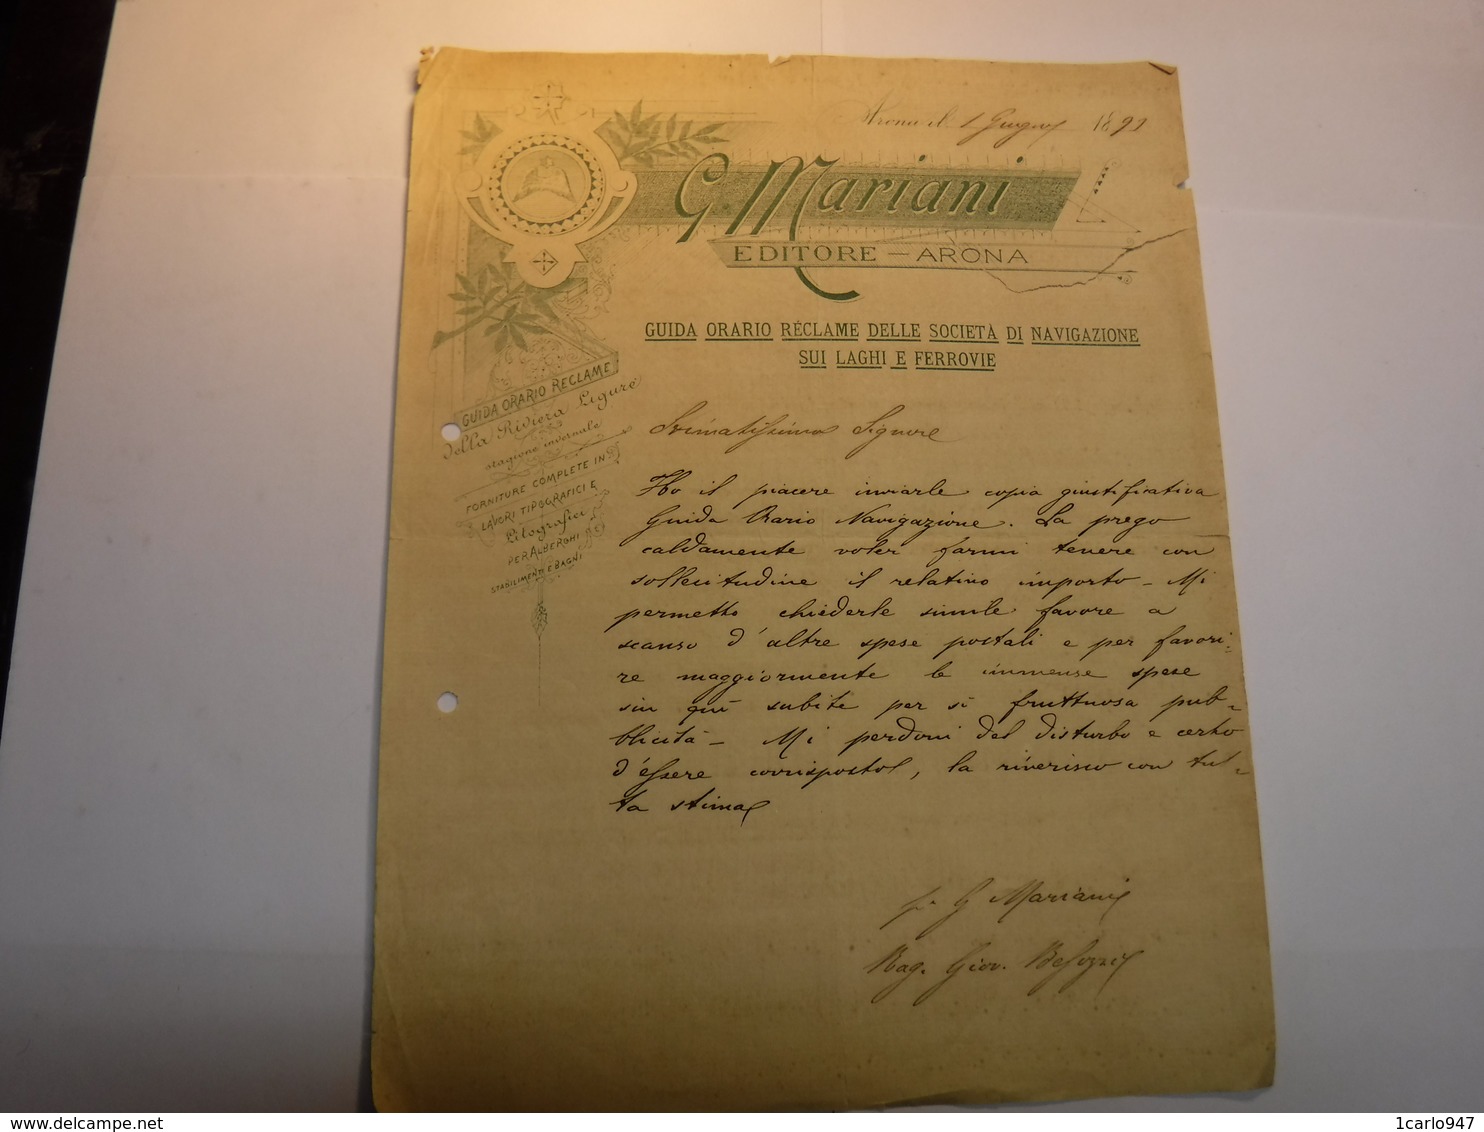 Arona il 1 Giugno 1892
G. Mariani
EDITORE — ARONA
GUIDA ORARIO RÉCLAME DELLE SOCIETÀ DI NAVIGAZIONE
SUI LAGHI E FERROVIE
GUIDA ORARIO RECLAME
della Riviera Ligure
stagione invernale
FORNITURE COMPLETE IN
LAVORI TIPOGRAFICI E
Litografici
PER ALBERGHI
STABILIMENTI E BAGNI
Stimatissimo Signore
Ho il piacere inviarle copia giustificativa
Guida Orario Navigazione. La prego
caldamente voler farmi tenere con
sollecitudine il relativo importo — Mi
permetto chiederle simile favore a
scanso d'altre spese postali e per favori-
re maggiormente le immense spese
sin quì subite per sì fruttuosa pub-
blicità — Mi perdoni del disturbo e certo
d'essere corrisposto, la riverisco con tut-
ta stima
p. G Mariani
Rag. Giov. Besozzi
1carlo947
delcampe.net